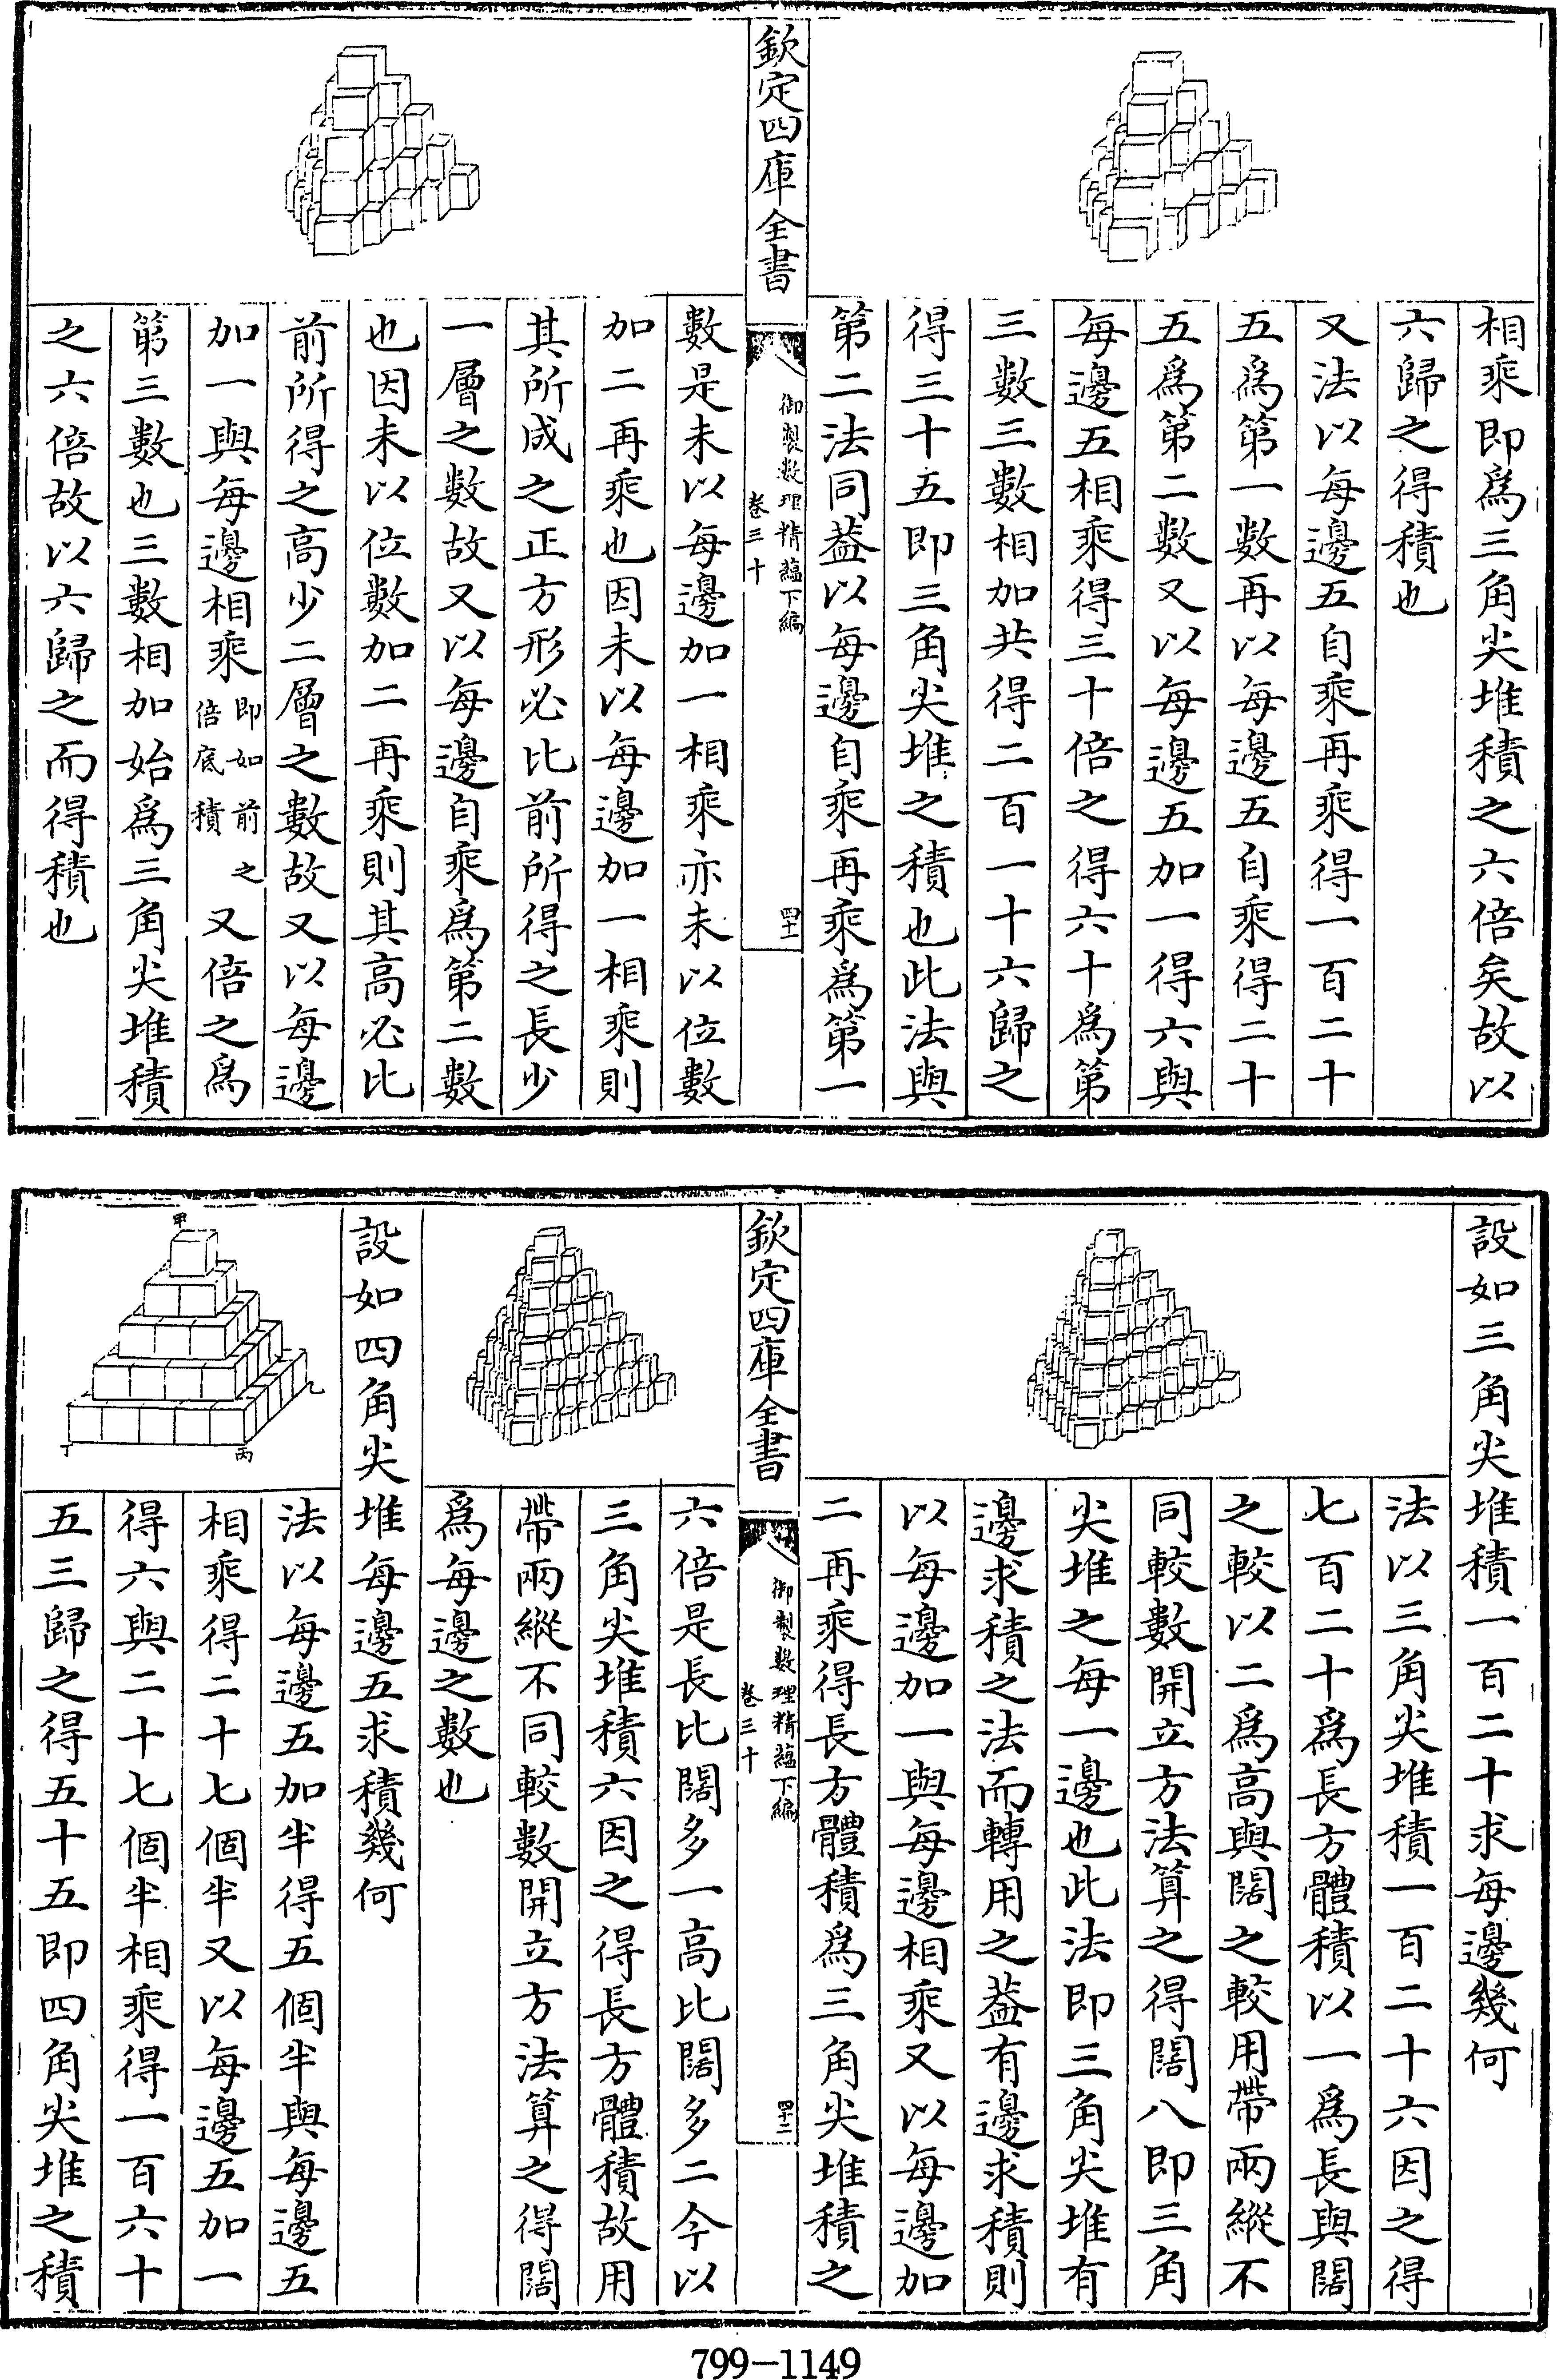 相乘即爲三角尖堆積之六倍矣故以
六歸之得積也
又法以每邊五自乘再乘得一百二十
五爲第一數再以每邊五自乘得二十
五爲第二數又以每邊五加一得六與
每邊五相乘得三十倍之得六十爲第
三數三數相加共得二百一十六歸之
得三十五即三角尖堆之積也此法與
第二法同葢以每邊自乘再乘爲第一
欽定四庫全書
御製數理精蘊下編
卷三十
四十一
數是未以每邊加一相乘亦未以位數
加二再乘也因未以每邊加一相乘則
其所成之正方形必比前所得之長少
一層之數故又以每邊自乘爲第二數
也因未以位數加二再乘則其高必比
前所得之高少二層之數故又以每邊
加一與每邊相乘即如前之倍底積又倍之爲
第三數也三數相加始爲三角尖堆積
之六倍故以六歸之而得積也
設如三角尖堆積一百二十求每邊幾何
法以三角尖堆積一百二十六因之得
七百二十爲長方體積以一爲長與闊
之較以二爲高與闊之較用帶兩縱不
同較數開立方法算之得闊八即三角
尖堆之每一邊也此法即三角尖堆有
邊求積之法而轉用之葢有邊求積則
以每邊加一與每邊相乘又以每邊加
二再乘得長方體積爲三角尖堆積之
欽定四庫全書
御製數理精蘊下編
卷三十
四十二
六倍是長比闊多一高比闊多二今以
三角尖堆積六因之得長方體積故用
帶兩縱不同較數開立方法算之得闊
爲每邊之數也
設如四角尖堆每邊五求積幾何
甲
乙
丙
丁
法以每邊五加半得五個半與每邊五
相乘得二十七個半又以每邊五加一
得六與二十七個半相乘得一百六十
五三歸之得五十五即四角尖堆之積
799-1149